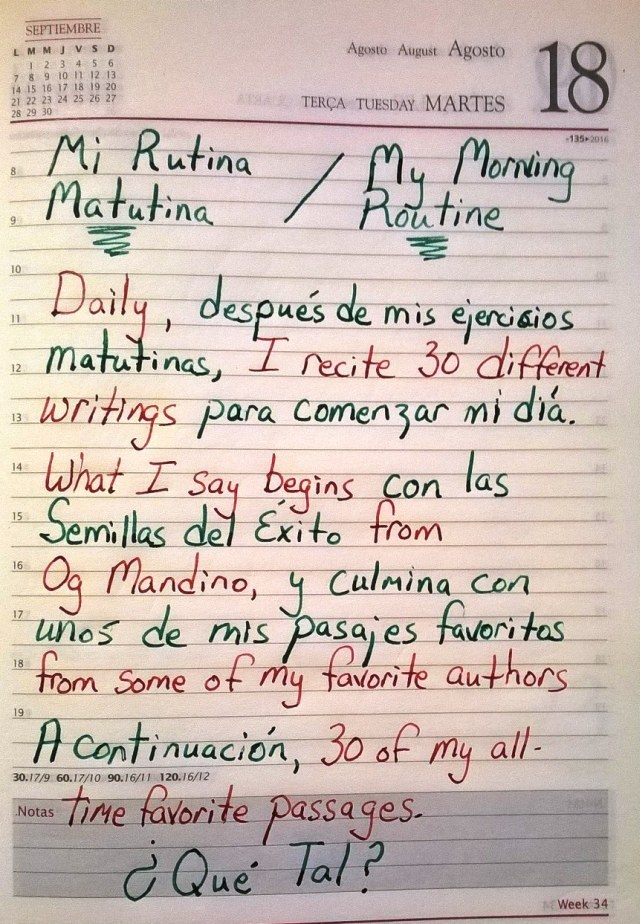 SEPTIEMBRE
L M M J V S D
1 2 3 4 5 6
7 8 9 10 11 12 13
14 15 16 17 18 19 20
21 22 23 24 25 26 27
28 29 30
Agosto August Agosto 18
TERÇA TUESDAY MARTES
•135•2016
8 Mi Rutina / My Morning
9 Matutina Routine
10
11 Daily, después de mis ejercicios
12 matutinas, I recite 30 different
13 writings para comenzar mi diá.
14 What I say begins con las
15 Semillas del Éxito from
16 Og Mandino, y culmina con
17 unos de mis pasajes favoritos
18 from some of my favorite authors
19
A continuación, 30 of my all-
30.17/9 60.17/10 90.16/11 120.16/12
Notas time favorite passages.
¿Qué Tal?
Week 34